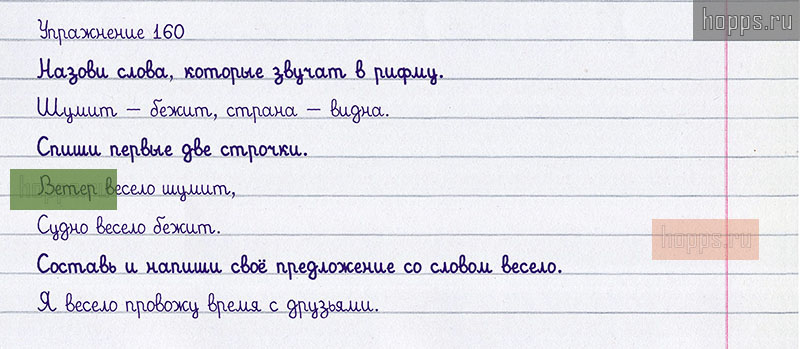 hopps.ru
Упражнение 160
Назови слова, которые звучат в рифму.
Шумит – бежит, страна – видна.
Спиши первые две строчки.
Ветер весело шумит,
Судно весело бежит.
hopps.ru
Составь и напиши своё предложение со словом весело.
Я весело провожу время с друзьями.